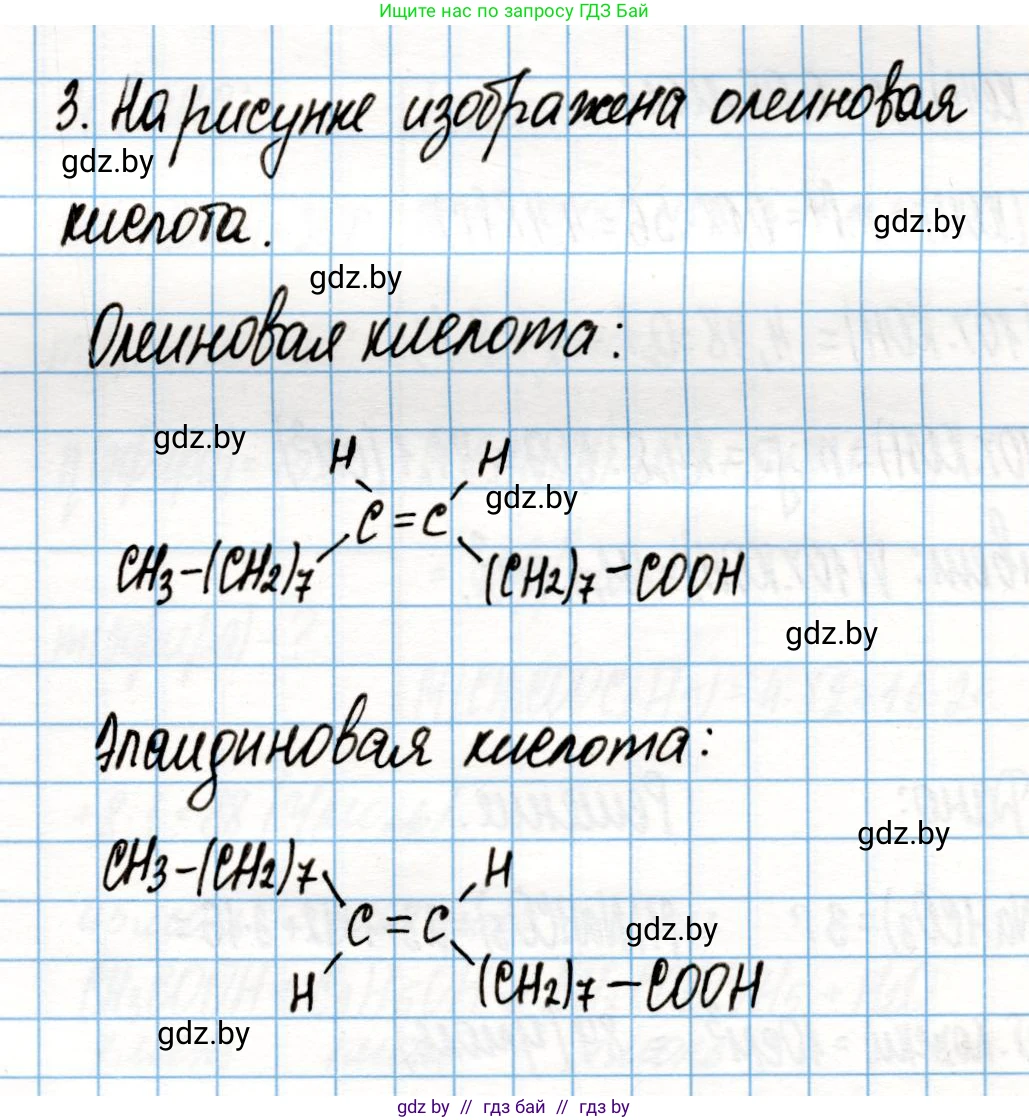 Ищите нас по запросу ГДЗ Бай
3. На рисунке изображена олеиновая
gdz.by
кислота.
gdz.by
gdz.by
Олеиновая кислота:
gdz.by
H H
gdz.by
C = C
CH3-(CH2)7 (CH2)7-COOH
gdz.by
Элаидиновая кислота:
gdz.by
CH3-(CH2)7 H
C = C
gdz.by
H (CH2)7-COOH
gdz.by
gdz.by // гдз бай // гдз by